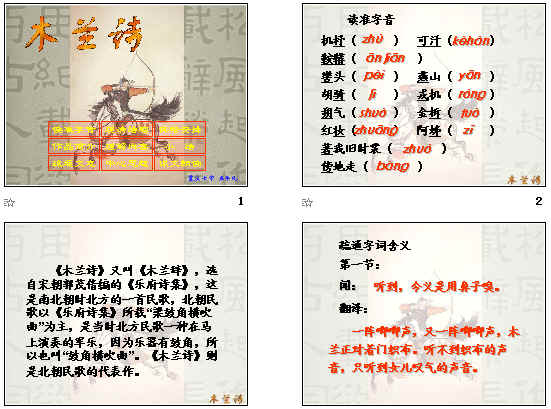 木兰诗
1
读准字音
机杼（zhù） 可汗（kèhán）
鞍鞯（ānjiān）
辔头（pèi） 燕山（yān）
胡骑（jì） 戎机（róng）
朔气（shuò） 金柝（tuò）
红妆（zhuāng） 阿姊（zǐ）
著我旧时裳（zhuó）
傍地走（bàng）
木兰诗
2
《木兰诗》又叫《木兰辞》，选
自宋朝郭茂倩编的《乐府诗集》，这
是南北朝时北方的一首民歌，北朝民
歌以《乐府诗集》所载“梁鼓角横吹
曲”为主，是当时北方民歌一种在马
上演奏的军乐，因为乐器有鼓角，所
以也叫“鼓角横吹曲”。《木兰诗》则
是北朝民歌的代表作。
木兰诗
疏通字词含义
第一节：
闻： 听到，今义是用鼻子嗅。
翻译：
一阵唧唧声，又一阵唧唧声，木
兰正对着门织布。听不到织布的声
音，只听到女儿叹气的声音。
木兰诗